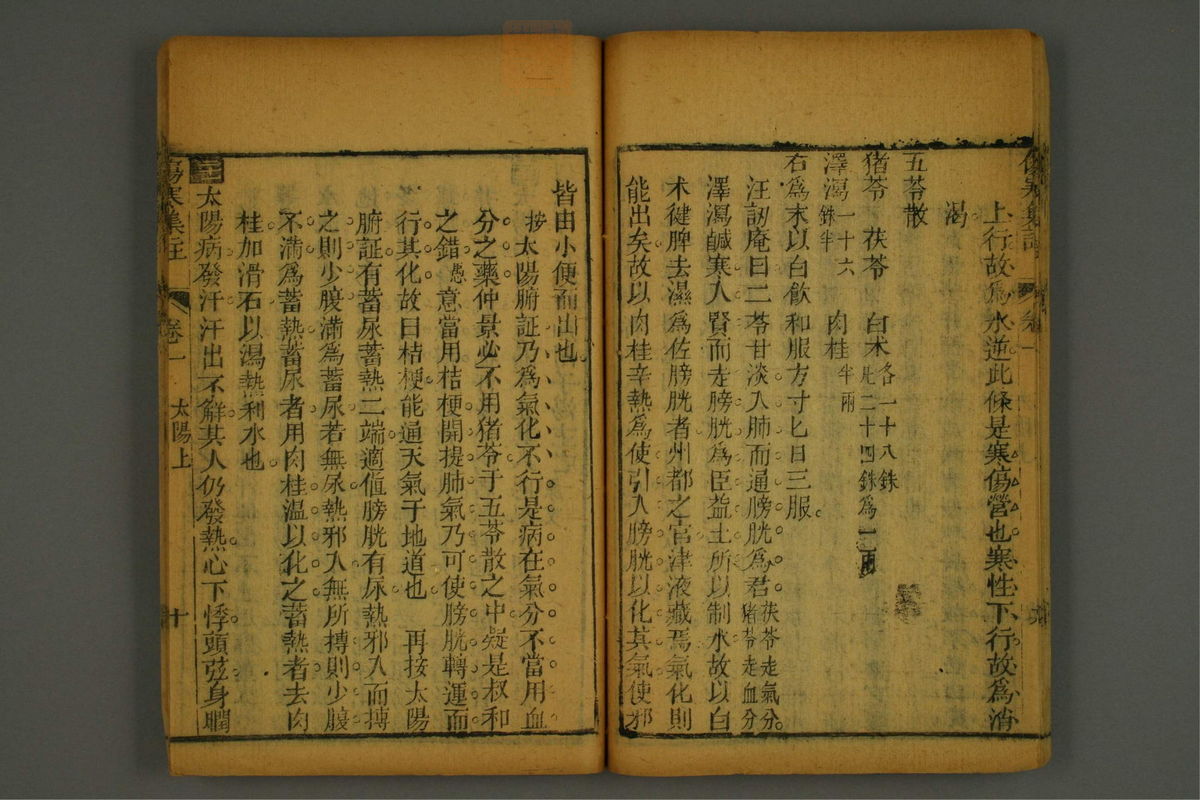 上行故爲水逆此條是寒傷營也寒性下行故爲消
渴
五苓散
猪苓 茯苓 白术各一十八銖 此二十四銖爲一兩
澤瀉一十六銖半 肉桂半兩
右爲末以白飲和服方寸匕日三服
汪訒庵曰二苓甘淡入肺而通膀胱爲君茯苓走氣分猪苓走血分
澤瀉鹹寒入腎而走膀胱爲臣益土所以制水故以白
术健脾去濕爲佐膀胱者州都之官津液藏焉氣化則
能出矣故以肉桂辛熱爲使引入膀胱以化其氣使邪
皆由小便而出也
按太陽腑証乃爲氣化不行是病在氣分不當用血
分之藥仲景必不用猪苓于五苓散之中疑是叔和
之錯愚意當用桔梗開提肺氣乃可使膀胱轉運而
行其化故曰桔梗能通天氣于地道也 再按太陽
腑証有蓄尿蓄熱二端適值膀胱有尿熱邪入而搏
之則少腹滿爲蓄尿若無尿熱邪入無所搏則少腹
不滿爲蓄熱蓄尿者用肉桂温以化之蓄熱者去肉
桂加滑石以瀉熱利水也
太陽病發汗汗出不解其人仍發熱心下悸頭弦身瞤
傷寒集註 卷一 太陽上 十